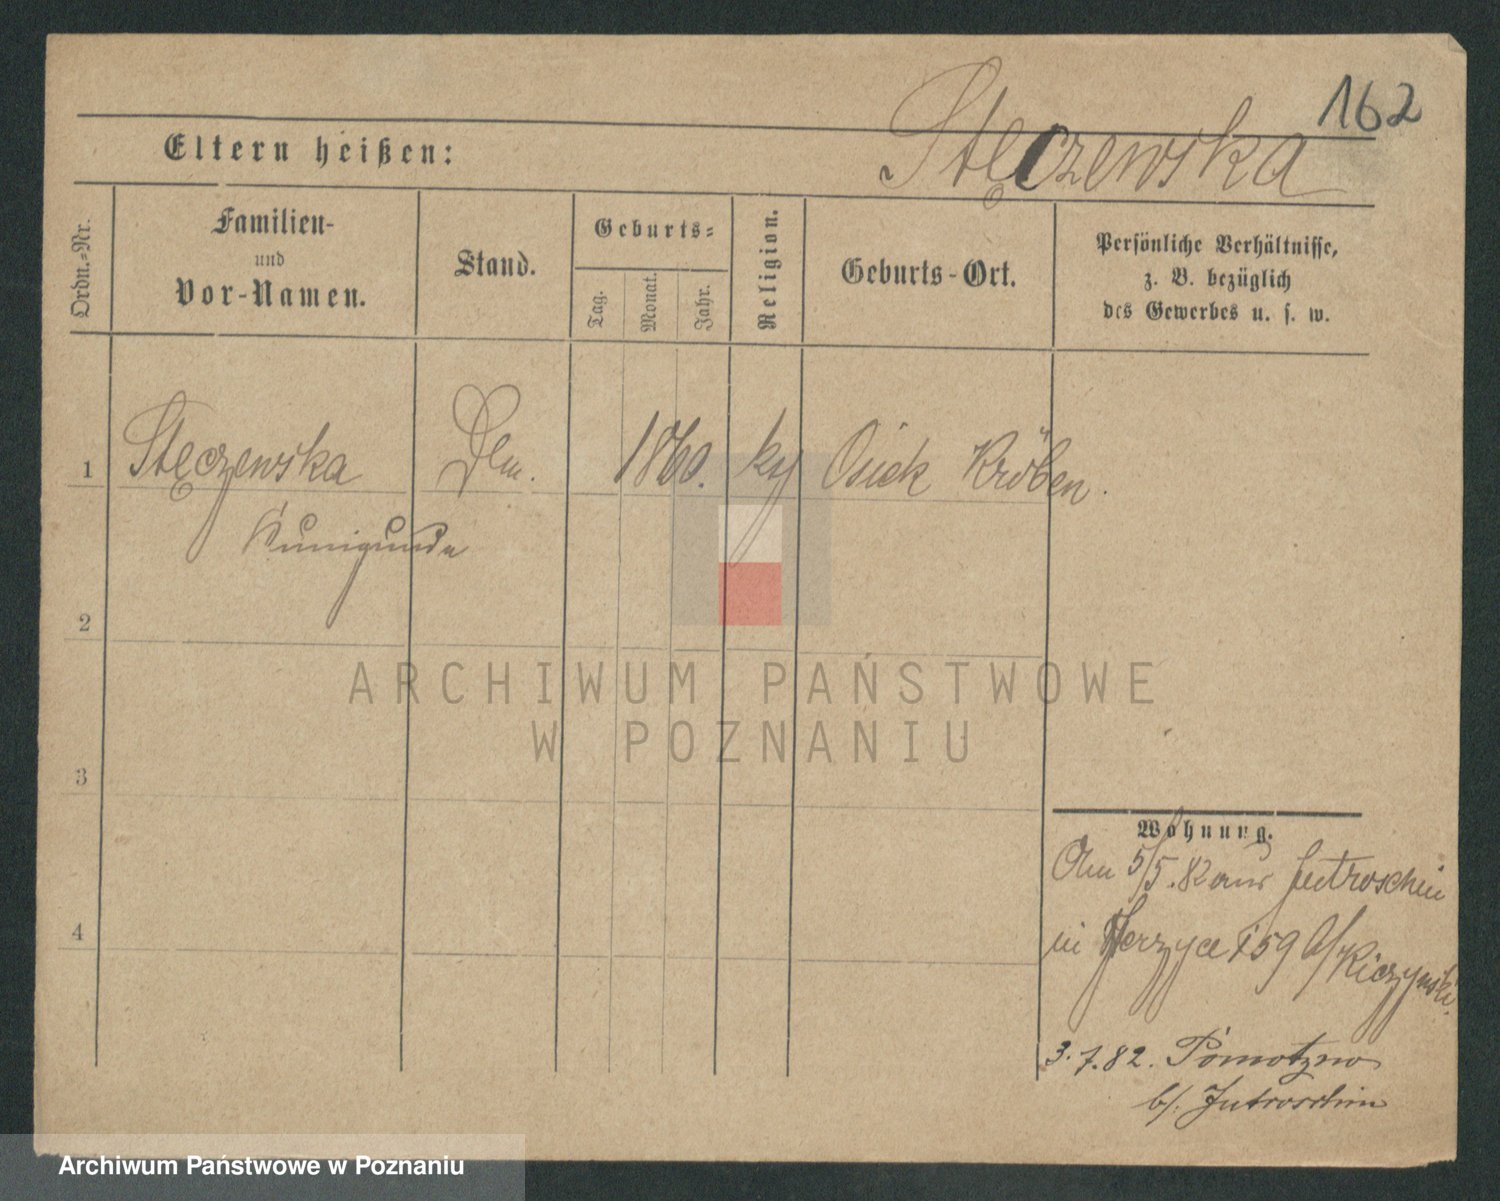 162
Stęczewska
Eltern heißen:
Ordn.-Nr.
Familien-
und
Vor-Namen.
Stand.
Geburts-
Tag.
Monat.
Jahr.
Religion.
Geburts-Ort.
Persönliche Verhältnisse,
z. B. bezüglich
des Gewerbes u. s. w.
1 Stęczewska 1860. Osiek Kröben.
Kunigunda
2
3
4
Wohnung.
Am 5/5.82 aus Jutroschin
in 159 b/
3.7.82.
b/. Jutroschin
ARCHIWUM PAŃSTWOWE
W POZNANIU
Archiwum Państwowe w Poznaniu